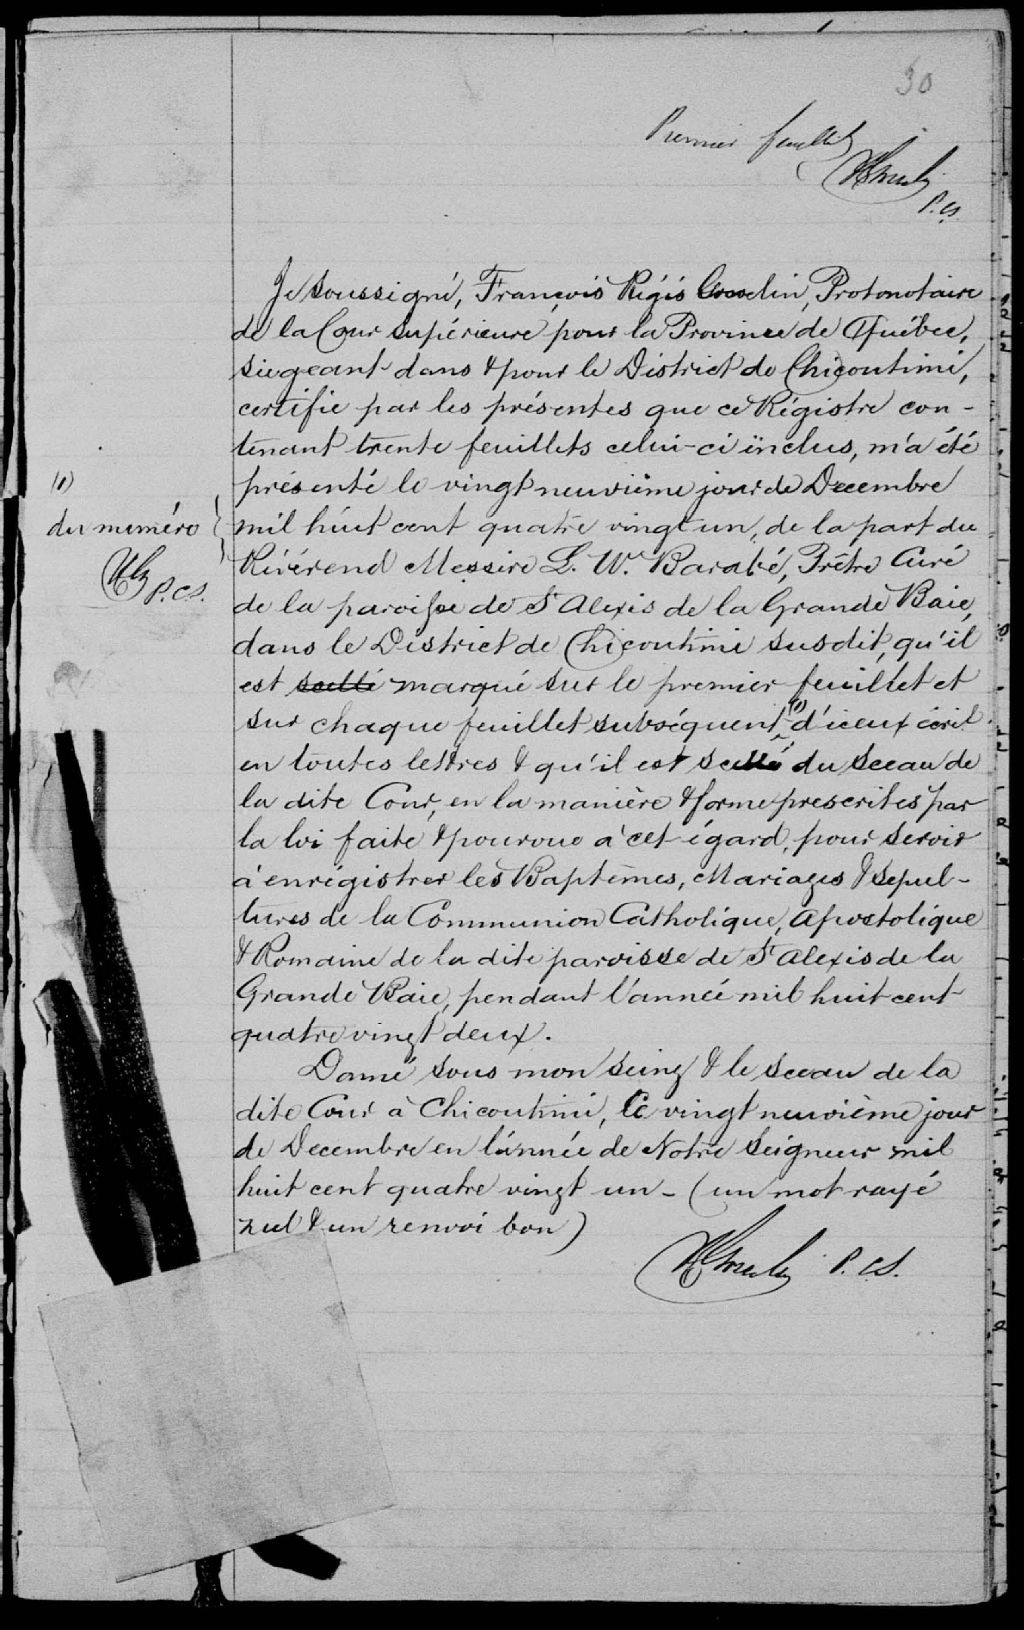 30
Premier feuillet
P. C. S.
Je soussigné, François Régis Gosselin, Protonotaire
de la Cour Supérieure, pour la Province de Québec,
siegeant dans & pour le District de Chicoutimi,
certifie par les présentes que ce Régistre con-
tenant trente feuillets celui-ci inclus, m'a été
présenté le vingt neuvième jour de Decembre
mil huit cent quatre vingt un, de la part du
Révérend Messire L. W. Barabé, Prêtre Curé
de la paroisse de St Alexis de la Grande Baie,
dans le District de Chicoutimi susdit, qu'il
est scellé marqué sur le premier feuillet et
sur chaque feuillet subséquent (1) d'iceux écrit
en toutes lettres & qu'il est scellé du sceau de
la dite Cour, en la manière & forme prescrites par
la loi faite & pourvue à cet égard, pour servir
à enrégistrer les Baptêmes, Mariages & Sepul-
tures de la Communion Catholique, Apostolique
& Romaine de la dite paroisse de St Alexis de la
Grande Baie, pendant l'année mil huit cent
quatre vingt deux.
Donné sous mon seing & le sceau de la
dite Cour à Chicoutimi, le vingt neuvième jour
de Decembre en l'année de Notre Seigneur mil
huit cent quatre vingt un - (un mot rayé
nul & un renvoi bon)
P. C. S.
(1)
du numéro
P. C. S.